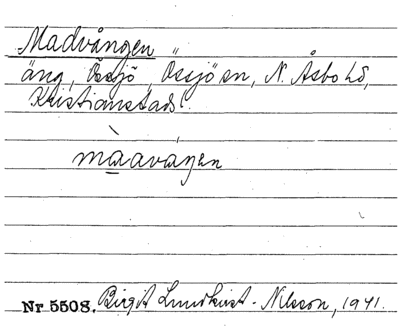 Madvången
äng, Össjö, Össjö sn, N. Åsbo hd,
Kristianstads l.
màaváŋen
Nr 5508. Birgit Lundkvist-Nilsson, 1941.